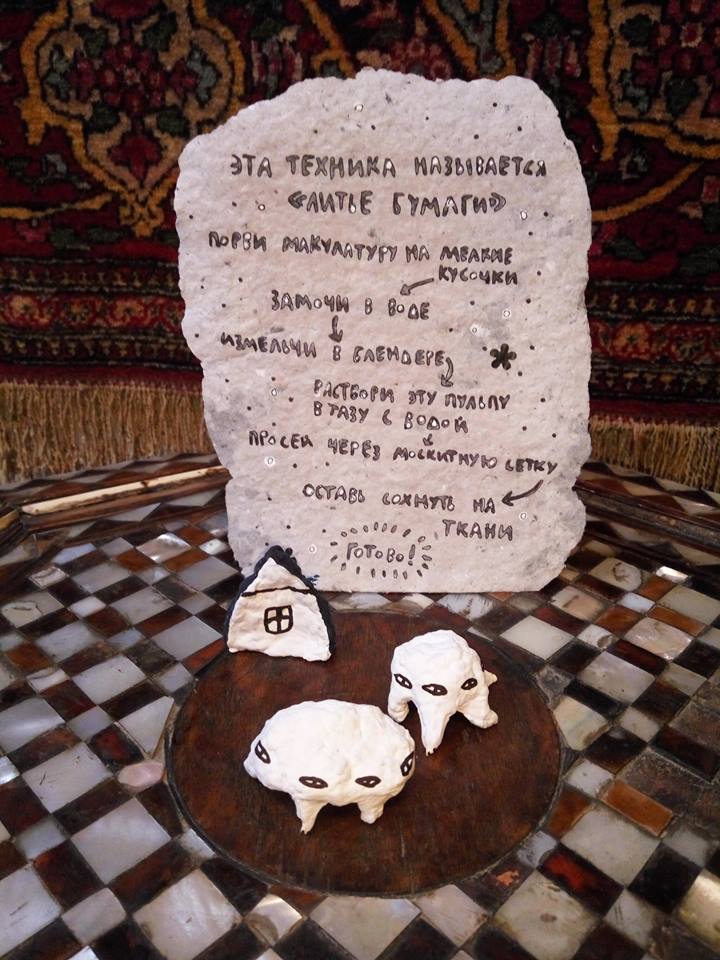 ЭТА ТЕХНИКА НАЗЫВАЕТСЯ
«ЛИТЬЕ БУМАГИ»
ПОРВИ МАКУЛАТУРУ НА МЕЛКИЕ
КУСОЧКИ
ЗАМОЧИ В ВОДЕ
ИЗМЕЛЬЧИ В БЛЕНДЕРЕ
РАСТВОРИ ЭТУ ПУЛЬПУ
В ТАЗУ С ВОДОЙ
ПРОСЕЙ ЧЕРЕЗ МОСКИТНУЮ СЕТКУ
ОСТАВЬ СОХНУТЬ НА
ТКАНИ
ГОТОВО!